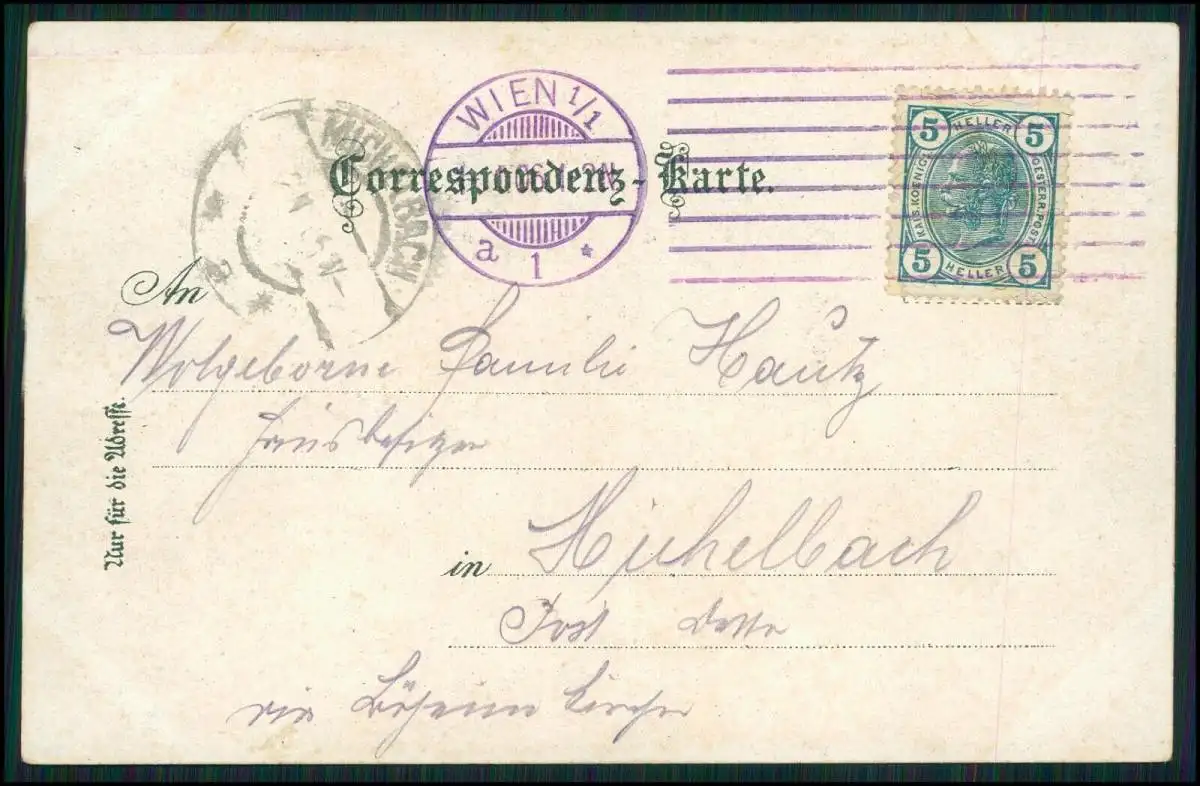 WIEN 1/1
a 1 *
MICHELBACH
Correspondenz-Karte.
5 HELLER 5
KAIS. KOENIGL. OESTERR. POST
5 HELLER 5
An
Wolgeborne Familie Hautz
Hausbesitzer
Nur für die Adresse.
in Michelbach
Post dette
via Böheimkirchen